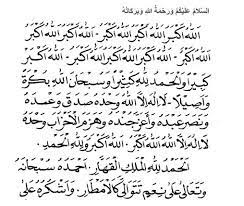 السَّلَامُ عَلَيْكُمْ وَرَحْمَةُ اللهِ وَبَرَكَاتُهُ
اللهُ اَكْبَرُ اللهُ اَكْبَرُ اللهُ اَكْبَرُ - اللهُ اَكْبَرُ اللهُ اَكْبَرُ
اللهُ اَكْبَرُ - اللهُ اَكْبَرُ اللهُ اَكْبَرُ اللهُ اَكْبَرُ - اللهُ اَكْبَرُ
كَبِيْرًا وَالْحَمْدُ لِلّٰهِ كَثِيْرًا وَسُبْحَانَ اللهِ بُكْرَةً
وَاَصِيْلًا - لَا اِلٰهَ اِلَّا اللهُ وَحْدَهُ صَدَقَ وَعْدَهُ
وَنَصَرَ عَبْدَهُ وَاَعَزَّ جُنْدَهُ وَهَزَمَ الْاَحْزَابَ وَحْدَهُ
لَا اِلٰهَ اِلَّا اللهُ اللهُ اَكْبَرُ - اللهُ اَكْبَرُ وَلِلّٰهِ الْحَمْدُ
اَلْحَمْدُ لِلّٰهِ الْمَلِكِ الْقَهَّارِ - اَحْمَدُهُ سُبْحَانَهُ
وَتَعَالَى عَلَى نِعَمٍ تَتَوَالَى كَالْاَمْطَارِ - وَاَشْكُرُهُ عَلَى